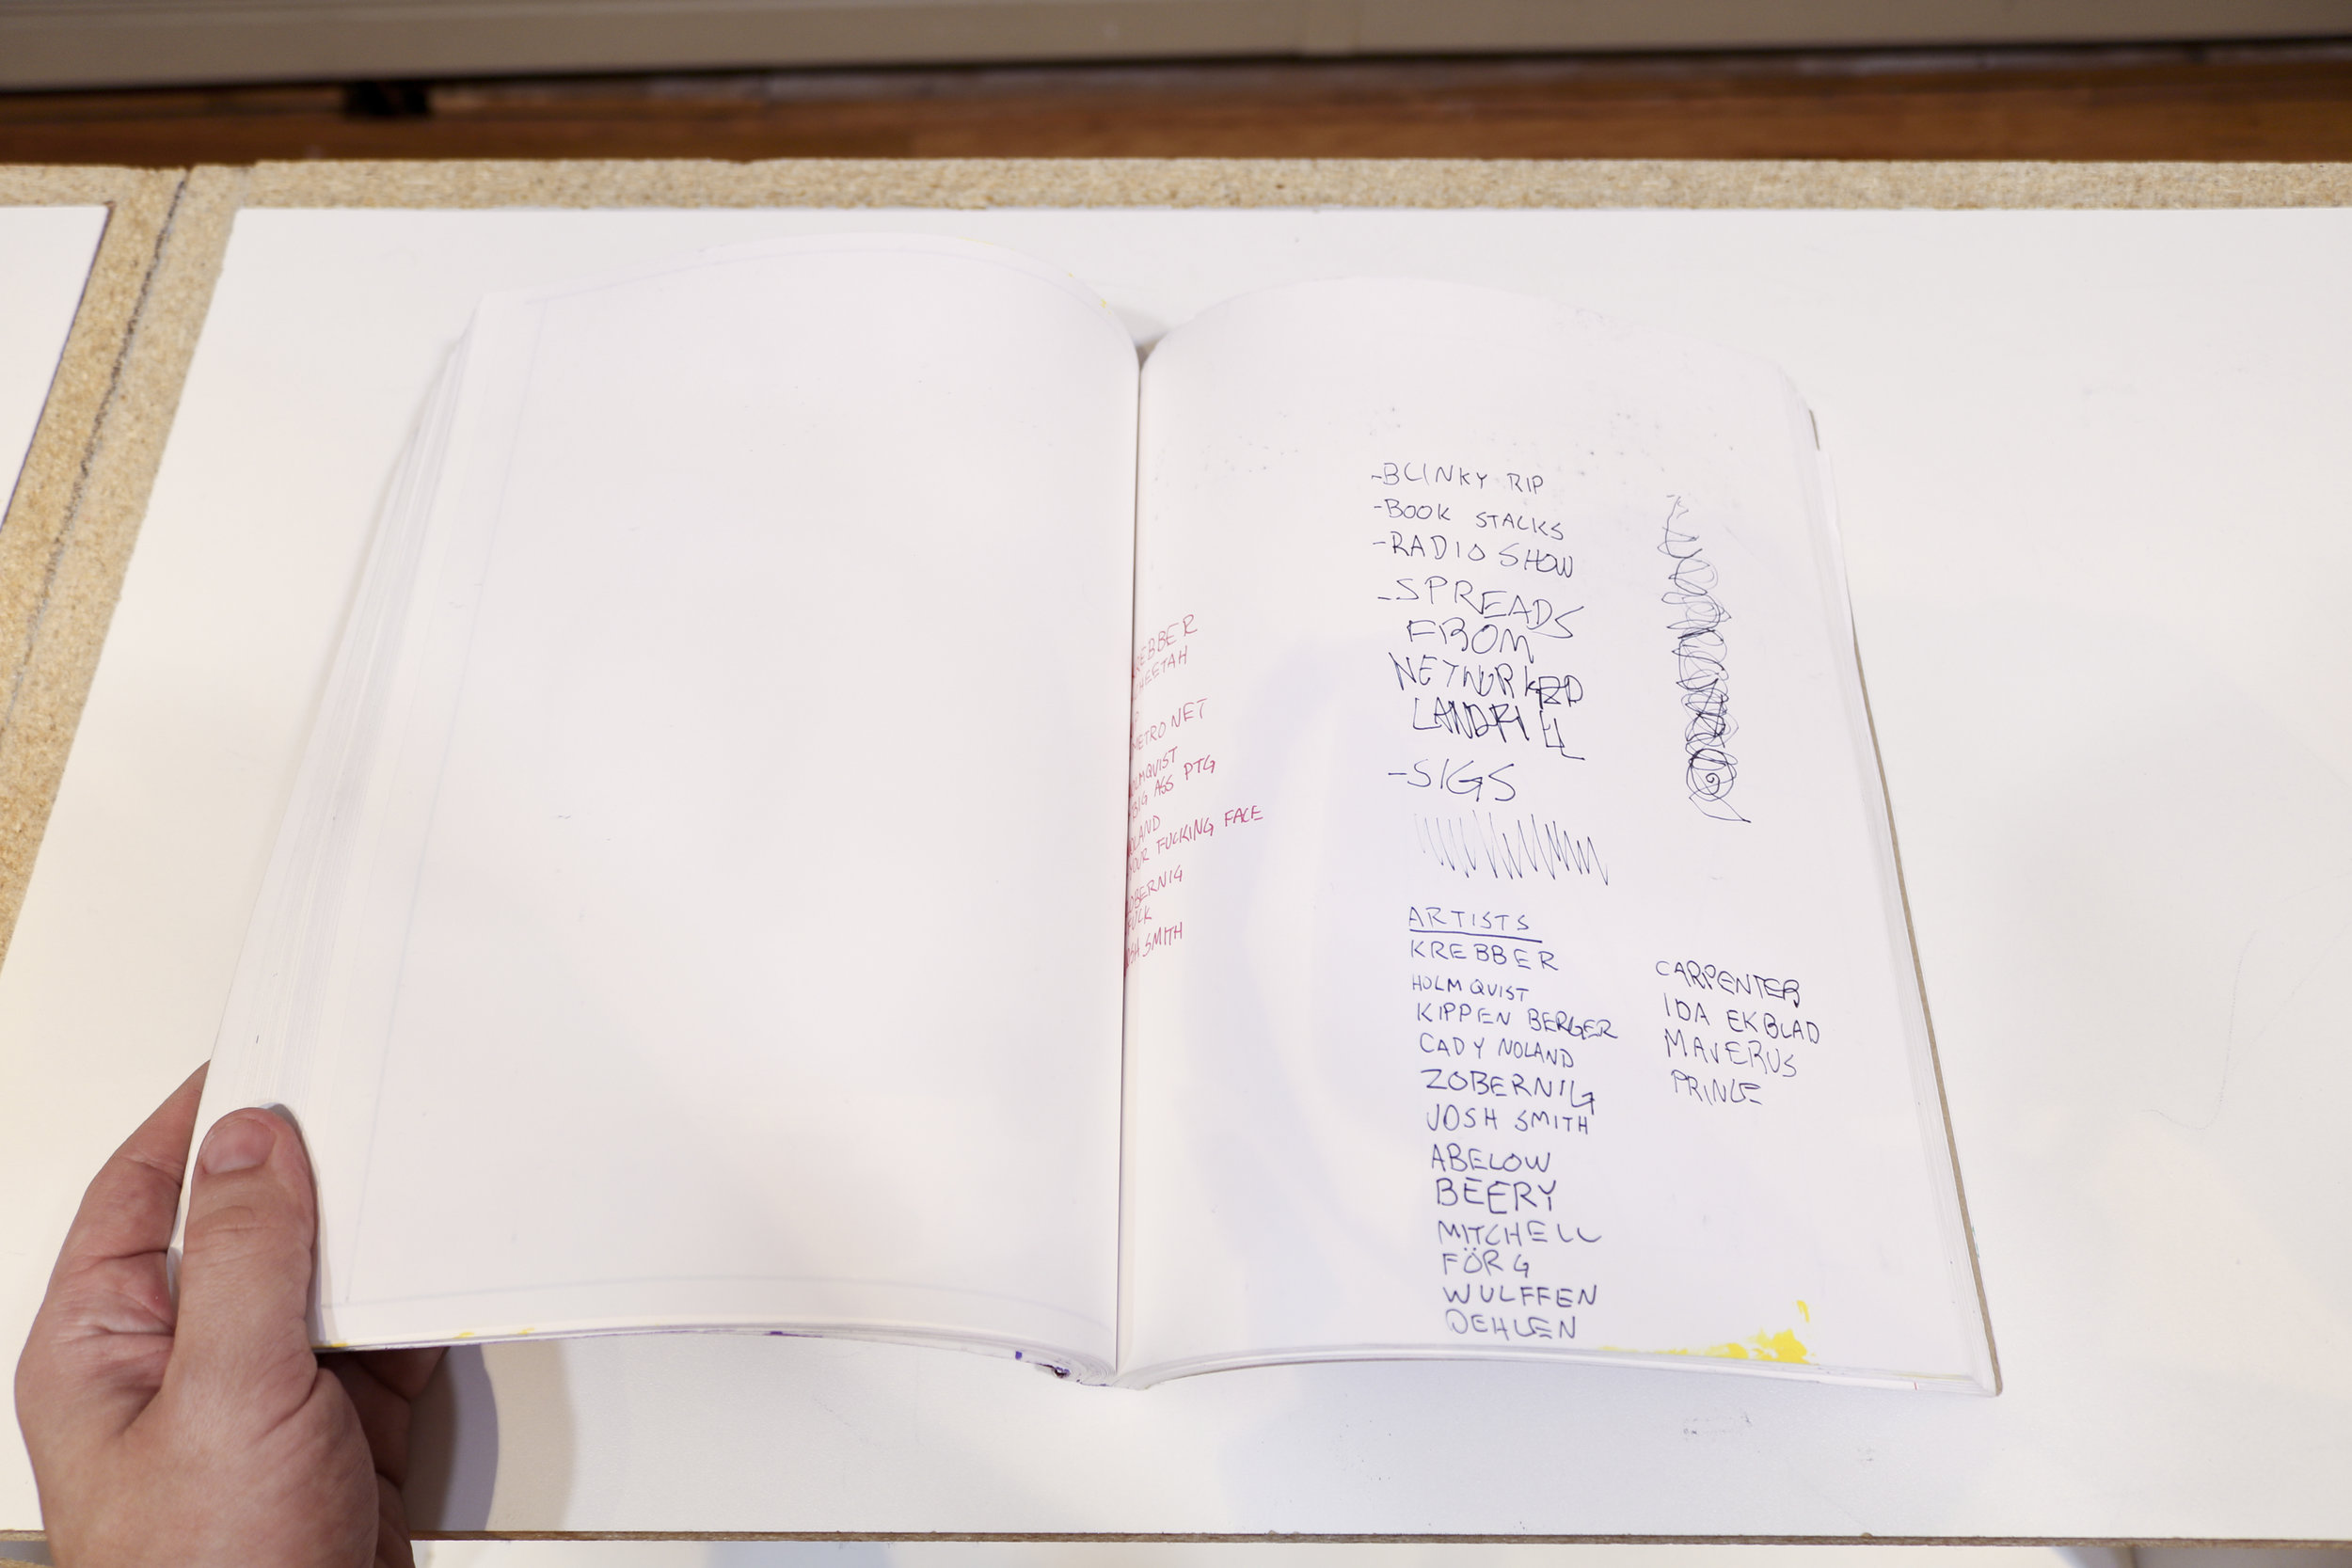 EBBER
HEETAH
P
METRO NET
OLMQUIST
BIG ASS PTG
OLAND
YOUR FUCKING FACE
OBERNIG
FUCK
OSH SMITH
-BLINKY RIP
-BOOK STALKS
-RADIO SHOW
-SPREADS
FROM
NETWORKED
LANDFILL
-SIGS
ARTISTS
KREBBER
HOLMQUIST
KIPPEN BERGER
CADY NOLAND
ZOBERNIG
JOSH SMITH
ABELOW
BEERY
MITCHELL
FÖRG
WULFFEN
OEHLEN
CARPENTER
IDA EKBLAD
MAVERUS
PRINCE